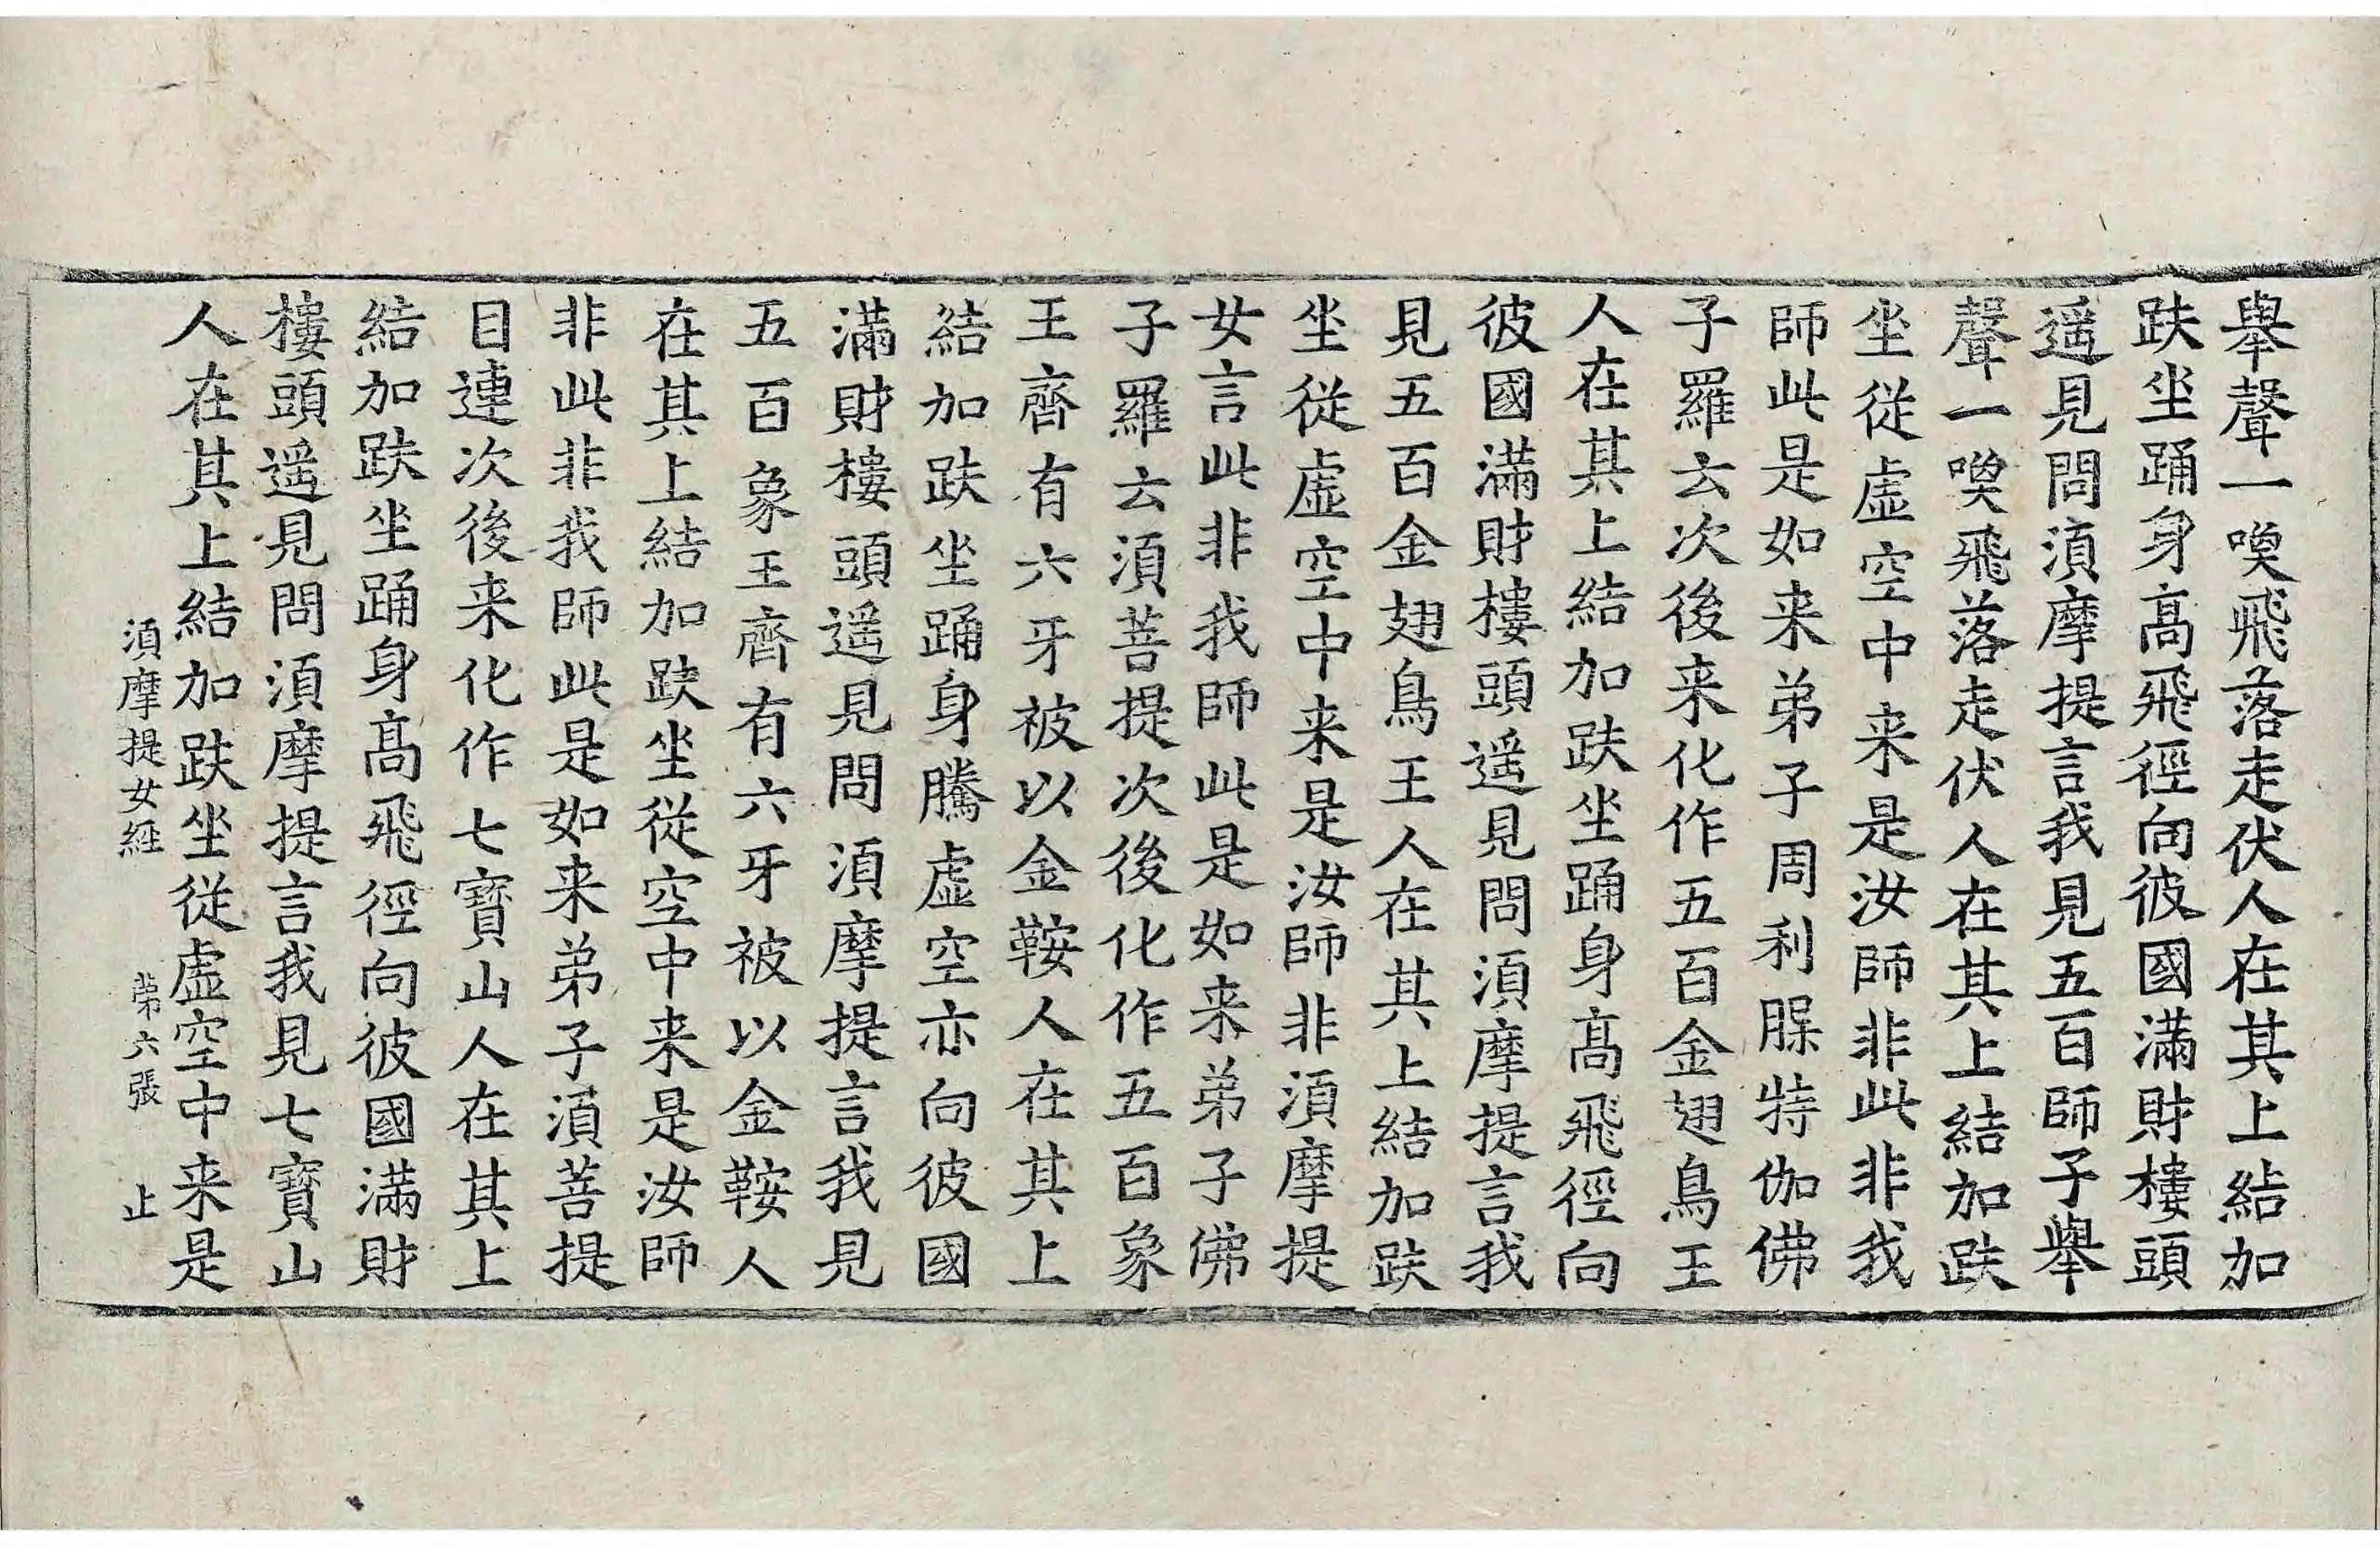 舉聲一喚飛落走伏人在其上結加
趺坐踊身髙飛徑向彼國滿財樓頭
遥見問湏摩提言我見五百師子舉
聲一喚飛落走伏人在其上結加趺
坐從虛空中来是汝師非此非我
師此是如来弟子周利䐗特伽佛
子羅云次後来化作五百金翅鳥王
人在其上結加趺坐踊身髙飛徑向
彼國滿財樓頭遥見問湏摩提言我
見五百金翅鳥王人在其上結加趺
坐從虛空中来是汝師非湏摩提
女言此非我師此是如来弟子佛
子羅云湏菩提次後化作五百象
王齊有六牙被以金鞍人在其上
結加趺坐踊身騰虛空亦向彼國
滿財樓頭遥見問湏摩提言我見
五百象王齊有六牙被以金鞍人
在其上結加趺坐從空中来是汝師
非此非我師此是如来弟子湏菩提
目連次後来化作七寳山人在其上
結加趺坐踊身髙飛徑向彼國滿財
樓頭遥見問湏摩提言我見七寳山
人在其上結加趺坐從虛空中来是
湏摩提女経　第六張　止